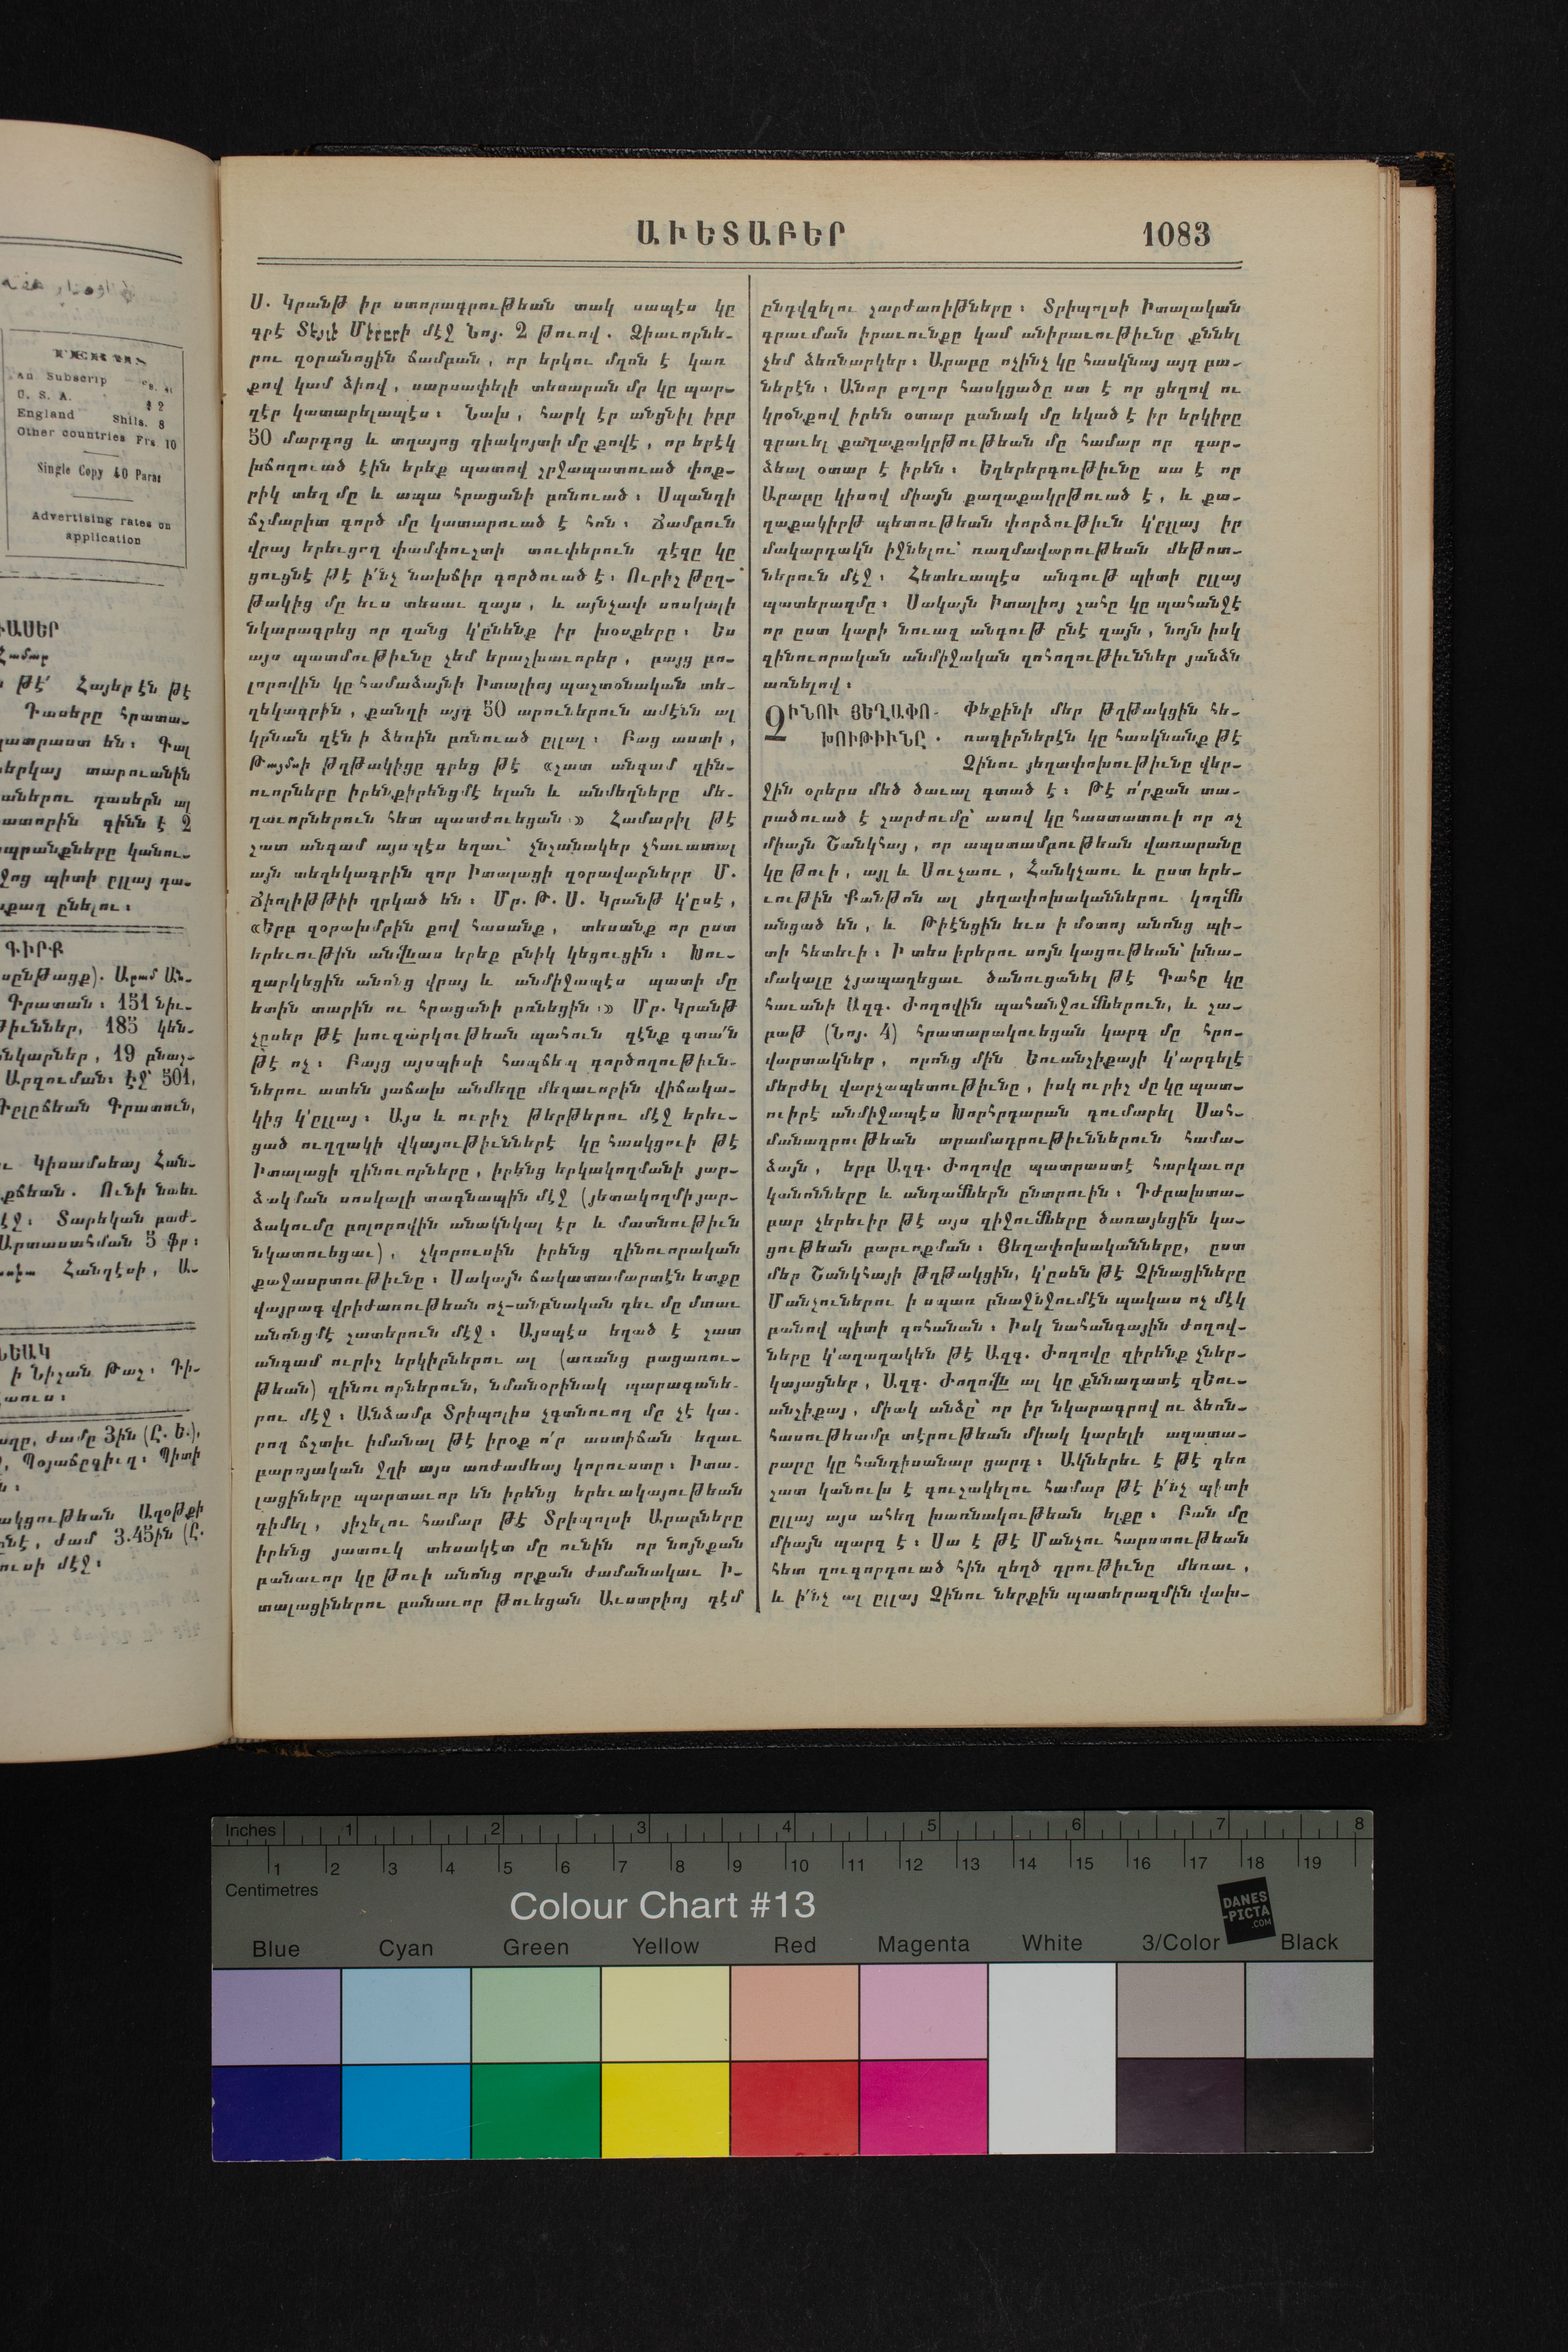 ԱՒԵՏԱԲԵՐ
1083
Ս. Կրանթ իր ստորագրութեան տակ սապէս կը
գրէ Տէյլի Միրըրի մէջ Նոյ. 2 թուով. Ձիաւորնե-
րու զօրանոցին ճամբան, որ երկու մղոն է կառ
քով կամ ձիով, սարսափելի տեսարան մը կը պար-
զէր կատարելապէս։ Նախ, հարկ էր անցնիլ իբր
50 մարդոց և տղայոց դիակոյտի մը քովէ, որ երէկ
խճողուած էին երեք պատով շրջապատուած փոք-
րիկ տեղ մը և ապա հրացանի բռնուած։ Սպանդի
ճշմարիտ գործ մը կատարուած է հոն։ Ճամբուն
վրայ երեւցող փամփուշտի տուփերուն դէզը կը
ցուցնէ թէ ի՛նչ նախճիր գործուած է։ Ուրիշ թըղ-
թակից մը եւս տեսաւ զայս, և այնչափ սոսկալի
նկարագրեց որ զանց կ'ընենք իր խօսքերը։ Ես
այս պատմութիւնը չեմ երաշխաւորեր, բայց բո-
լորովին կը համաձայնի Իտալիոյ պաշտօնական տե-
ղեկագրին, քանզի այդ 50 արուներուն ամէնն ալ
կրնան զէն ի ձեռին բռնուած ըլլալ։ Բաց աստի,
Թայմսի թղթակիցը գրեց թէ «շատ անգամ զին-
ուորները իրենքիրենցմէ ելան և անմեղները մե-
ղաւորներուն հետ պատժուեցան։» Համարիլ թէ
շատ անգամ այսպէս եղաւ՝ չնշանակեր չհաւատալ
այն տեղեկագրին զոր Իտալացի զօրավարները Մ.
Ճիոլիթթիի ղրկած են։ Մր. Թ. Ս. Կրանթ կ'ըսէ,
«Երբ զօրախմբին քով հասանք, տեսանք որ ըստ
երեւութին անվնաս երեք բնիկ կեցուցին։ Խու-
զարկեցին անոնց վրայ և անմիջապէս պատի մը
ետին տարին ու հրացանի բռնեցին։» Մր. Կրանթ
չըսեր թէ խուզարկութեան պահուն զէնք գտա՛ն
թէ ոչ։ Բայց այսպիսի հապճեպ գործողութիւն-
ներու ատեն յաճախ անմեղը մեղաւորին վիճակա-
կից կ'ըլլայ։ Այս և ուրիշ թերթերու մէջ երեւ-
ցած ուղղակի վկայութիւններէ կը հասկցուի թէ
Իտալացի զինուորները, իրենց երկակողմանի յար-
ձակման սոսկալի տագնապին մէջ (յետակողմի յար-
ձակումը բոլորովին անակնկալ էր և մատնութիւն
նկատուեցաւ), չկորուսին իրենց զինուորական
քաջասրտութիւնը։ Սակայն ճակատամարտէն ետքը
վայրագ վրիժառութեան ոչ-անբնական դեւ մը մտաւ
անոնցմէ շատերուն մէջ։ Այսպէս եղած է շատ
անգամ ուրիշ երկիրներու ալ (առանց բացառու-
թեան) զինուորներուն, նմանօրինակ պարագանե-
րու մէջ։ Անձամբ Տրիպոլիս չգտնուող մը չէ կա-
րող ճշտիւ իմանալ թէ իրօք ո՛ր աստիճան եղաւ
բարոյական ջղի այս առժամեայ կորուստը։ Իտա-
լացիները պարտաւոր են իրենց երեւակայութեան
դիմել, յիշելու համար թէ Տրիպոլսի Արաբները
իրենց յատուկ տեսակէտ մը ունին որ նոյնքան
բանաւոր կը թուի անոնց որքան ժամանակաւ Ի-
տալացիներու բանաւոր թուեցան Աւստրիոյ դէմ
ընդվզելու շարժառիթները։ Տրիպոլսի Իտալական
գրաւման իրաւունքը կամ անիրաւութիւնը քննել
չեմ ձեռնարկեր։ Արաբը ոչինչ կը հասկնայ այդ բա-
ներէն։ Անոր բոլոր հասկցածը սա է որ ցեղով ու
կրօնքով իրեն օտար բանակ մը եկած է իր երկիրը
գրաւել քաղաքակրթութեան մը համար որ դար-
ձեալ օտար է իրեն։ Եղերերգութիւնը սա է որ
Արաբը կիսով միայն քաղաքակրթուած է, և քա-
ղաքակիրթ պետութեան փորձութիւն կ'ըլլայ իր
մակարդակն իջնելու՝ ռազմավարութեան մեթոտ-
ներուն մէջ։ Հետեւապէս անգութ պիտի ըլլայ
պատերազմը։ Սակայն Իտալիոյ շահը կը պահանջէ
որ ըստ կարի նուազ անգութ ընէ զայն, նոյն իսկ
զինուորական անմիջական զոհողութիւններ յանձն
առնելով։
ՉԻՆՈՒ ՅԵՂԱՓՈ-
ԽՈՒԹԻՒՆԸ.
Փեքինի մեր թղթակցին հե-
ռագիրներէն կը հասկնանք թէ
Չինու յեղափոխութիւնը վեր-
ջին օրերս մեծ ծաւալ գտած է։ Թէ ո՛րքան տա-
րածուած է շարժումը՝ ասով կը հաստատուի որ ոչ
միայն Շանկհայ, որ ապստամբութեան վառարանը
կը թուի, այլ և Սուչաու, Հանկչաու և ըստ երե-
ւութին Քանթոն ալ յեղափոխականներու կողմն
անցած են, և Թիէնցին եւս ի մօտոյ անոնց պի-
տի հետեւի։ Ի տես իրերու սոյն կացութեան՝ խնա-
մակալը չյապաղեցաւ ծանուցանել թէ Գահը կը
հաւանի Ազգ. Ժողովին պահանջումներուն, և շա-
բաթ (Նոյ. 4) հրատարակուեցան կարգ մը հրո-
վարտակներ, որոնց մին Եուանշիքայի կ'արգելէ
մերժել վարչապետութիւնը, իսկ ուրիշ մը կը պատ-
ուիրէ անմիջապէս Խորհրդարան գումարել Սահ-
մանադրութեան տրամադրութիւններուն համա-
ձայն, երբ Ազգ. Ժողովը պատրաստէ հարկաւոր
կանոնները և անդամներն ընտրուին։ Դժբախտա-
բար չերեւիր թէ այս զիջումները ծառայեցին կա-
ցութեան բարւոքման։ Յեղափոխականները, ըստ
մեր Շանկհայի թղթակցին, կ'ըսեն թէ Չինացիները
Մանչուներու ի սպառ բնաջնջումէն պակաս ոչ մէկ
բանով պիտի գոհանան։ Իսկ նահանգային ժողով-
ները կ'աղաղակեն թէ Ազգ. Ժողովը զիրենք չներ-
կայացներ, Ազգ. Ժողովն ալ կը քննադատէ զԵու-
անշիքայ, միակ անձը՝ որ իր նկարագրով ու ձեռն-
հասութեամբ տէրութեան միակ կարելի ազատա-
րարը կը հանդիսանար ցարդ։ Ակներեւ է թէ դեռ
շատ կանուխ է գուշակելու համար թէ ի՛նչ պիտի
ըլլայ այս ահեղ խառնակութեան ելքը։ Բան մը
միայն պարզ է։ Սա է թէ Մանչու հարստութեան
հետ զուգորդուած հին գեղծ դրութիւնը մեռաւ,
և ի՛նչ ալ ըլլայ Չինու ներքին պատերազմին վախ-
TERMS
An. Subscrip
U. S. A.
$ 2
England
Shils. 8
Other countries Frs 10
Single Copy 40 Paras
Advertising rates on
application
թէ՛ Հայերէն թէ
Դասերը հրատա-
պատրաստ են։ Գալ
ներկայ տարուանին
դասերն ալ
գինն է 2
կանու-
պիտի ըլլայ
ընելու։
ԳԻՐՔ
151
185
19
501,
Գրատուն,
Կիսամսեայ Հան-
Ունի նաեւ
Տարեկան բաժ-
Արտասահման 5 ֆր։
Հանդէսի,
ի Նիշան Թաշ։
ժամը 3ին (Ը. Ե.),
Պիտի
Աղօթքի
ժամ 3.45ին (Ը.
մէջ։
Inches 1 2 3 4 5 6 7 8
1 2 3 4 5 6 7 8 9 10 11 12 13 14 15 16 17 18 19
Centimetres
Colour Chart #13
DANES
-PICTA
.COM
Blue Cyan Green Yellow Red Magenta White 3/Color Black